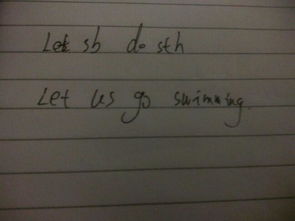 Let sb do sth
Let us go swimming.